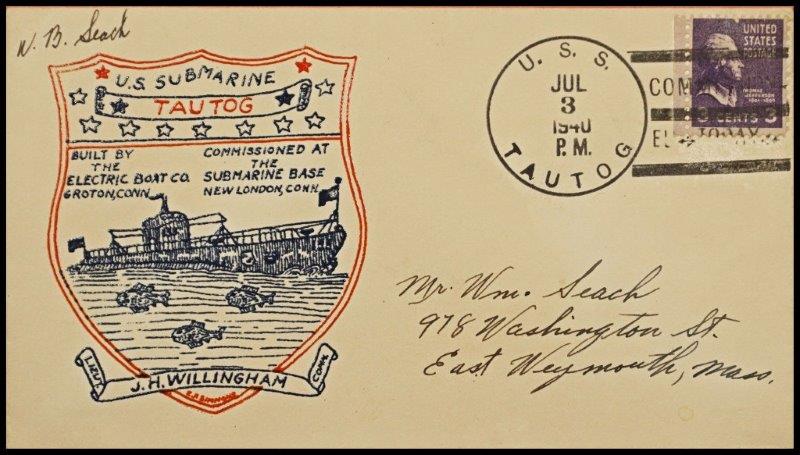 W. B. Seach
U.S. SUBMARINE
TAUTOG
BUILT BY
THE
ELECTRIC BOAT CO.
GROTON, CONN.
COMMISSIONED AT
THE
SUBMARINE BASE
NEW LONDON, CONN.
LIEUT.
J.H. WILLINGHAM
COMM.
U. S. S.
JUL
3
1940
P.M.
TAUTOG
UNITED
STATES
POSTAGE
THOMAS
JEFFERSON
3 CENTS 3
TODAY
Mr. Wm. Seach
978 Washington St.
East Weymouth, Mass.